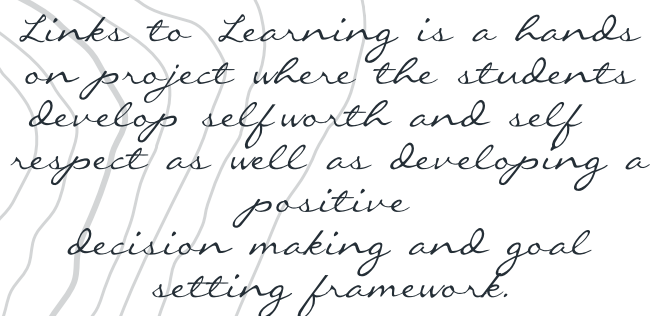 Links to Learning is a hands
on project where the students
develop selfworth and self
respect as well as developing a
positive
decision making and goal
setting framework.